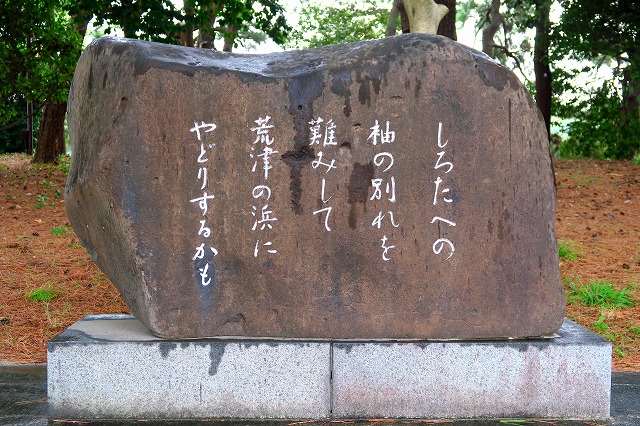 しろたへの
袖の別れを
難みして
荒津の浜に
やどりするかも